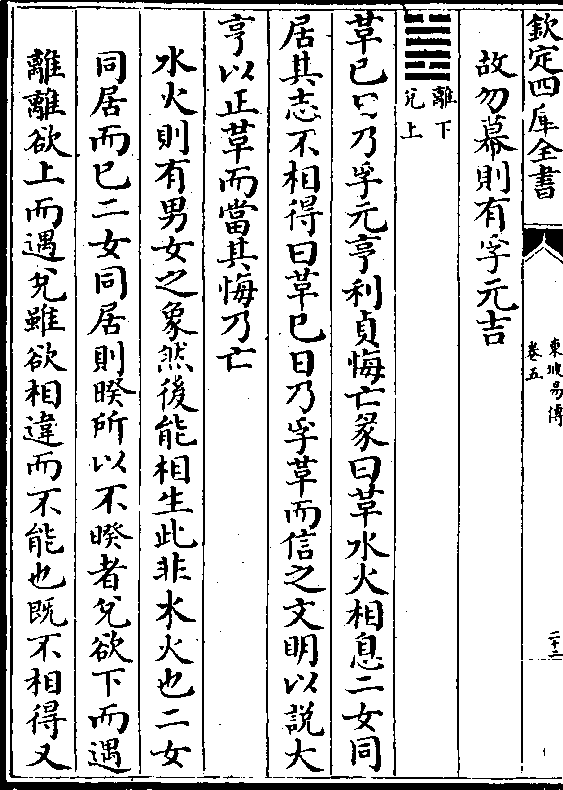 欽定四庫全書
東坡易傳
卷五
二十二
故勿幕則有孚元吉
離下
兊上
革已日乃孚元亨利貞悔亡彖曰革水火相息二女同
居其志不相得曰革已日乃孚革而信之文明以說大
亨以正革而當其悔乃亡
水火則有男女之象然後能相生此非水火也二女
同居而已二女同居則睽所以不睽者兊欲下而遇
離離欲上而遇兊雖欲相違而不能也既不相得又